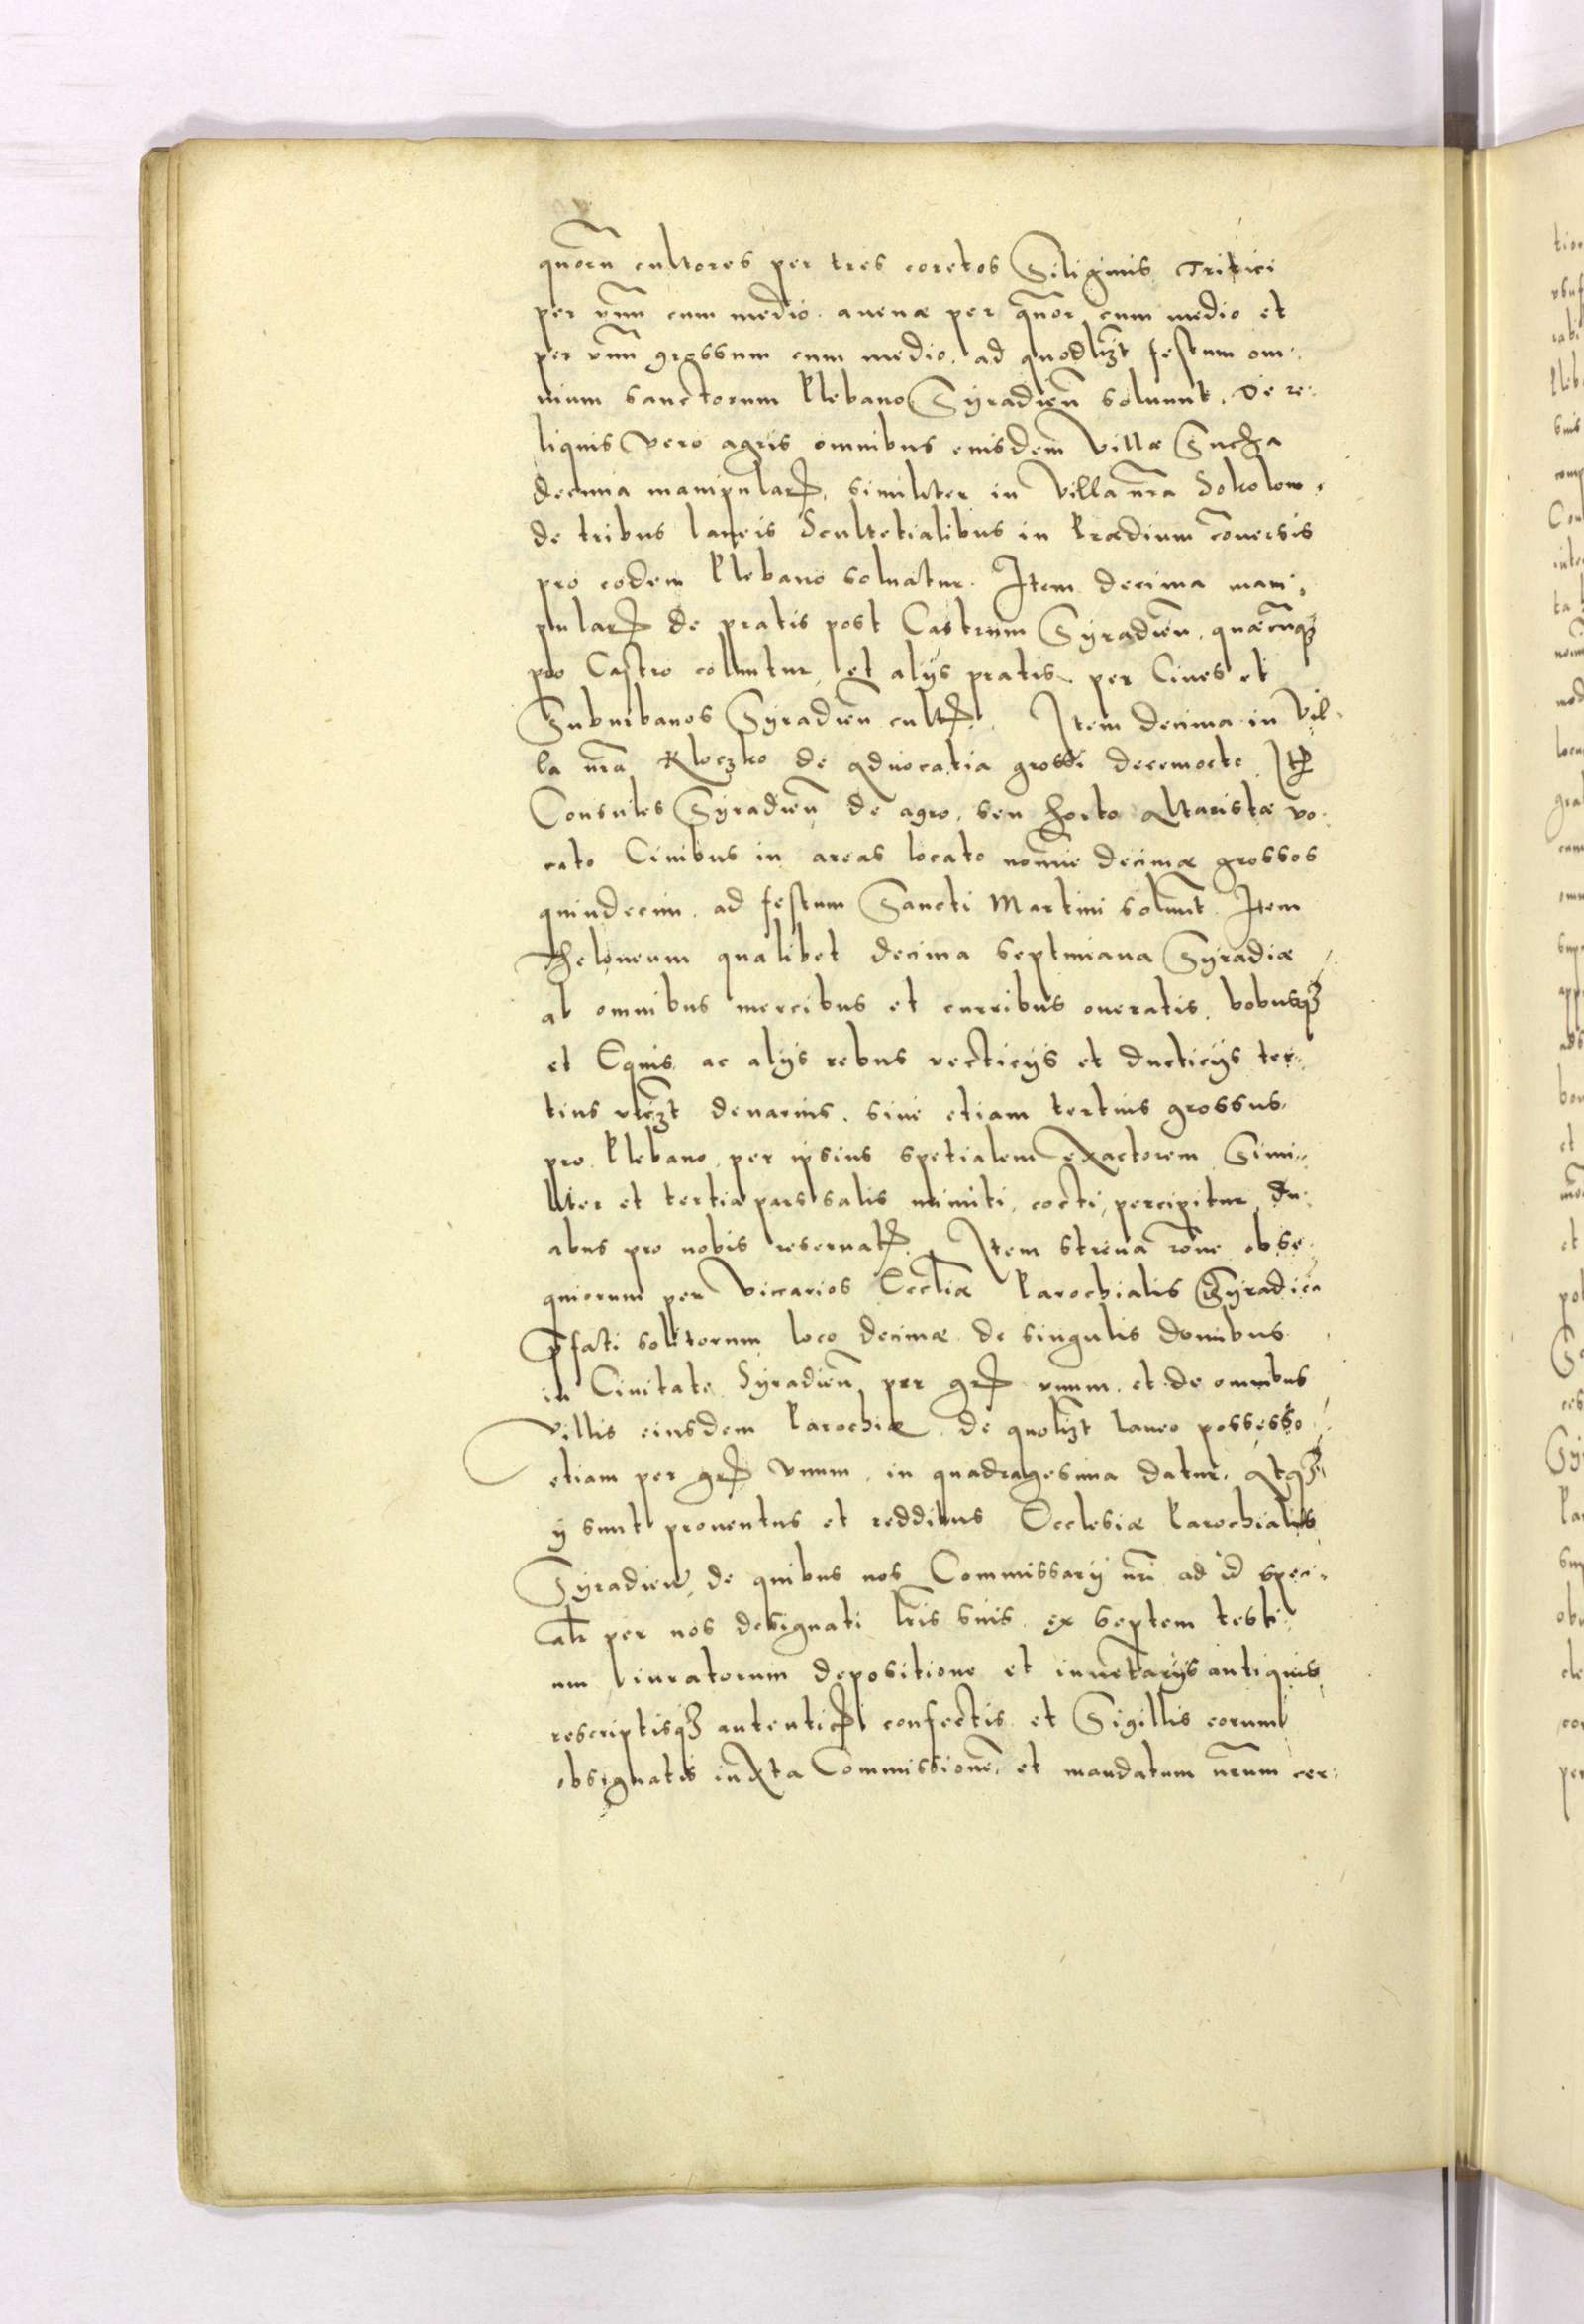 quorū cultores per tres coretos Siliginis Tritici
per vnū cum medio. auenæ per quor cum medio et
per vnū grossum cum medio. ad quodlizt festum om-
nium sanctorum Plebano Syradien̄ soluunt. De re-
liquis vero agris omnibus eiusdem Villæ Sucha
decima manipular. similiter in Villa nr̄a Sokolow.
de tribus laneis Scultetialibus in Prædium cōuersis
pro eodem Plebano soluatur. Item decima mani-
pular de pratis post Castrum Syradien̄. quæcūq3
pro Castro coluntur, et alijs pratis per Ciues et
Suburbanos Syradien̄ cult. Item decima in Vil-
la nr̄a Kloczko de aduocatia grossi decemocto It
Consules Syradien̄ de agro, seu horto Altaristæ vo-
cato Ciuibus in areas locato noīe decimæ grossos
quindecim. ad festum Sancti Martini soluūt. Item
Theloneum qualibet decima septimana Syradiæ
ab omnibus mercibus et curribus oneratis. bobusq3
et Equis ac alijs rebus vecticijs et ducticijs ter-
tius vidzt denarius. siue etiam tertius grossus
pro Plebano per ipsius spetialem exactorem Simi-
liter et tertia pars salis minuti, cocti, percipitur, du-
abus pro nobis reseruat. Item strena rōne obse-
quiorum per Viccarios Eccl̄iæ Parochialis Syradien
p̄fati solitorum loco decimæ de singulis domibus
in Ciuitate Syradien̄ per gr vnum et de omnibus
Villis eiusdem Parochiæ de quolizt laneo possesso
etiam per gr vnum, in quadragesima datur. Atq3
ij sunt prouentus et redditus Ecclesiæ Parochialis
Syradien, de quibus nos Commissarij nr̄i ad id speci-
alr per nos designati lr̄is suis ex septem testi-
um iuratorum depositione et inuētarijs antiquis
rescriptisq3 autentic confectis et Sigillis eorum
obsignatis iuxta Commissionē, et mandatum nr̄um cer-